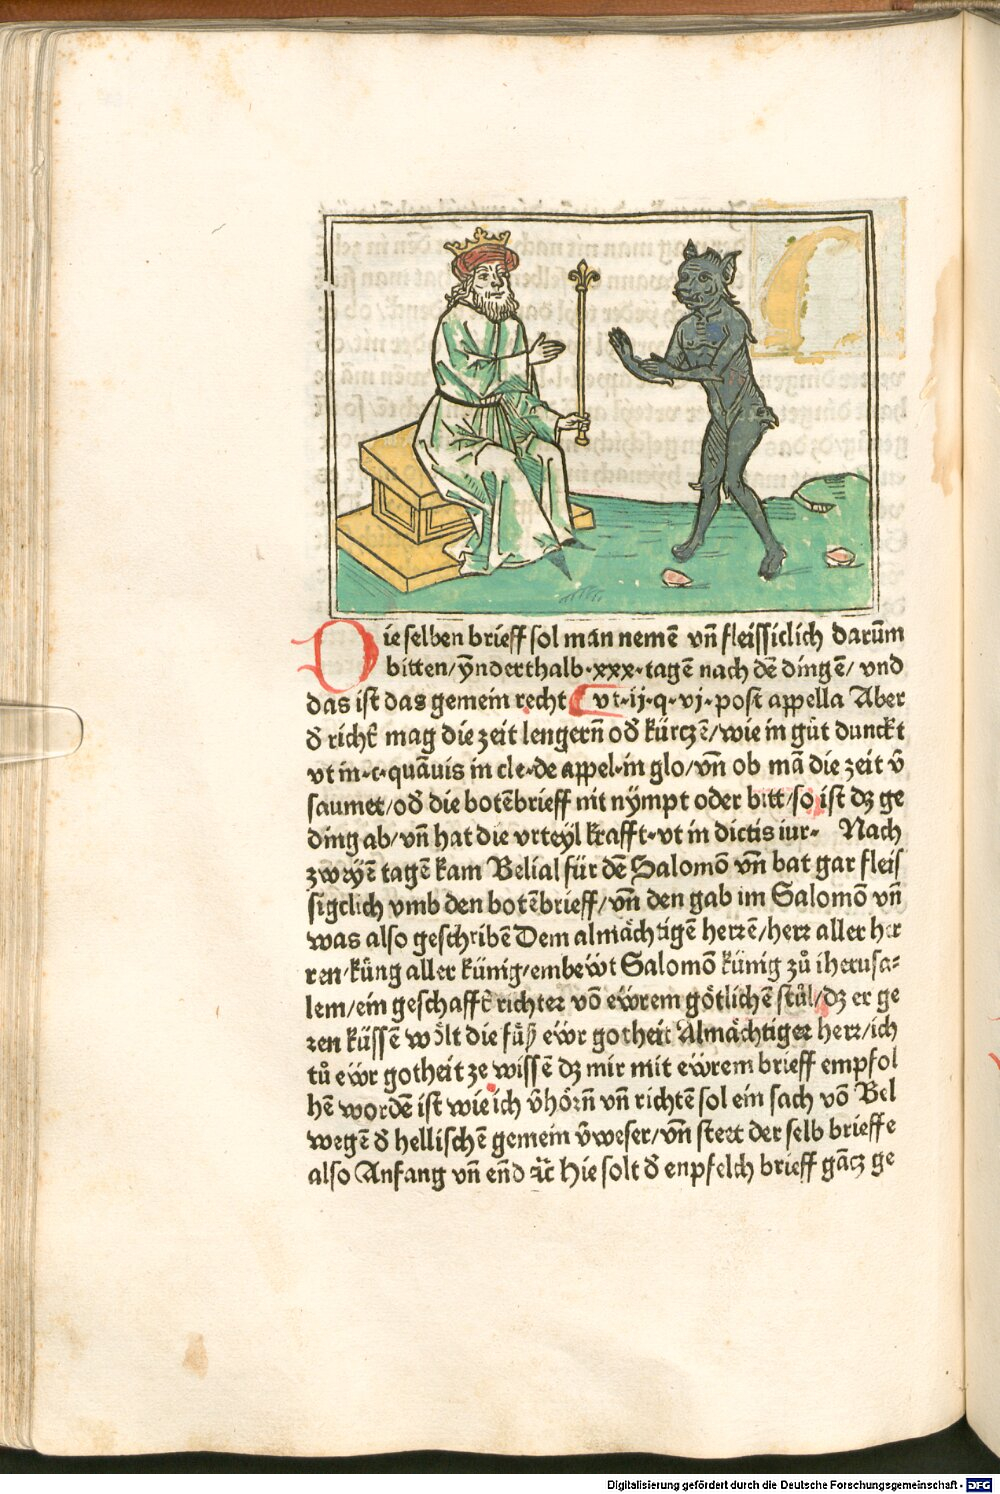 Die selben brieff sol man nemē vn̄ fleissiclich darūm
bitten/ ÿnderthalb·xxx·tagē nach dē dingē/ vnd
das ist das gemein recht vt·ij·q·vj·post appella Aber
ð richť mag die zeit lengern̄ oð kürczē/wie in gůt dunckt
vt in·c·quāuis in cle·de appel·in glo/vn̄ ob mā die zeit v̄
saumet/oð die botēbrieff nit nÿmpt oder bitt/so ist dz ge
ding ab/vn̄ hat die vrteyl krafft·vt in dictis iur· Nach
zweÿē tagē kam Belial für dē Salomō vn̄ bat gar fleis
sigclich vmb den botēbrieff/vn̄ den gab im Salomō vn̄
was also geschribē Dem almächtigē herrē/herr aller her
ren/küng aller künig/embewt Salomō künig zů iherusa-
lem/ein geschaffť richter vō ewrem götlichē stůl/dz er ge
ren küssē wölt die füß ewr gotheit Almächtiger herr/ich
tů ewr gotheit ze wissē dz mir mit ewrem brieff empfol
hē wordē ist wie ich v̄hörn̄ vn̄ richtē sol ein sach vō Bel
wegē ð hellischē gemein v̄weser/vn̄ steet der selb brieffe
also Anfang vn̄ end ꝛc̄ Hie solt ð enpfelch brieff gācz ge
Digitalisierung gefördert durch die Deutsche Forschungsgemeinschaft - DFG